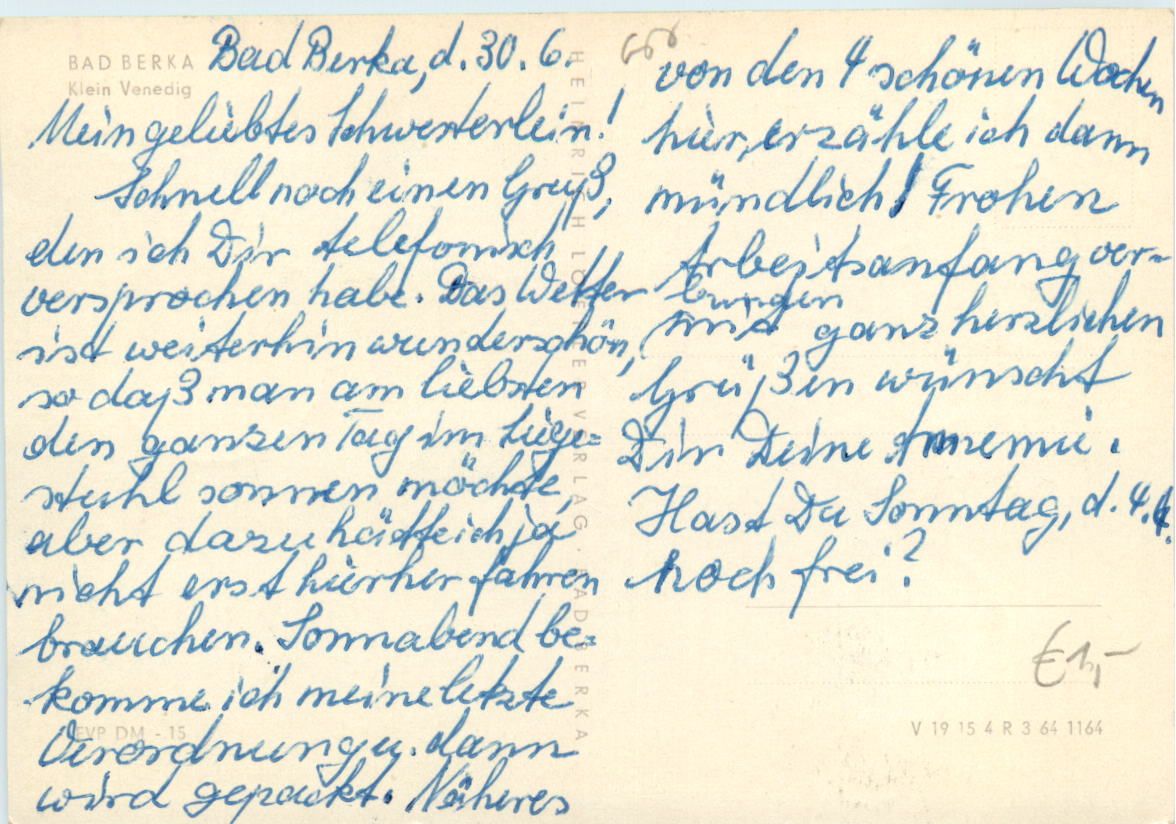 BAD BERKA
Klein Venedig
Bad Berka, d. 30. 6.
Mein geliebtes Schwesterlein!
Schnell noch einen Gruß,
den ich Dir telefonisch
versprochen habe. Das Wetter
ist weiterhin wunderschön,
so daß man am liebsten
den ganzen Tag im Liege=
stuhl sonnen möchte,
aber dazu hätte ich ja
nicht erst hierher fahren
brauchen. Sonnabend be=
komme ich meine letzte
Verordnung u. dann
wird gepackt. Näheres
EVP DM -.15
HEINRICH LÖFFLER VERLAG · BAD BERKA
von den 4 schönen Wochen
hier, erzähle ich dann
mündlich! Frohen
Arbeitsanfang ver=
bunden
mit ganz herzlichen
Grüßen wünscht
Dir Deine Annemie.
Hast Du Sonntag, d. 4.
noch frei?
€1,-
V 19 15 4 R 3 64 1164